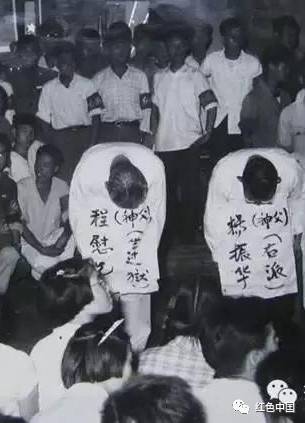 程慰
(神父)(坐过獄)
振华
(神父)(右派)
红色中国